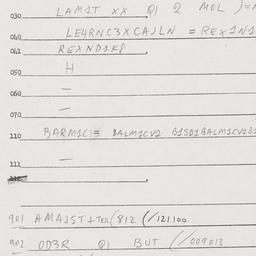 030. LAM1T XX Q1 2 MOL )=
040. LE4RNC3XCAJLN = REX1N1
041 REXND1K8
050. H
060. —
070. —
110 BARM1C1 = BALM1CV2 B1SD1BALM1CV2B
111 —
901 AMAJST1TKL(812 (/121100
902 OD3R Q1 BUT (/009013